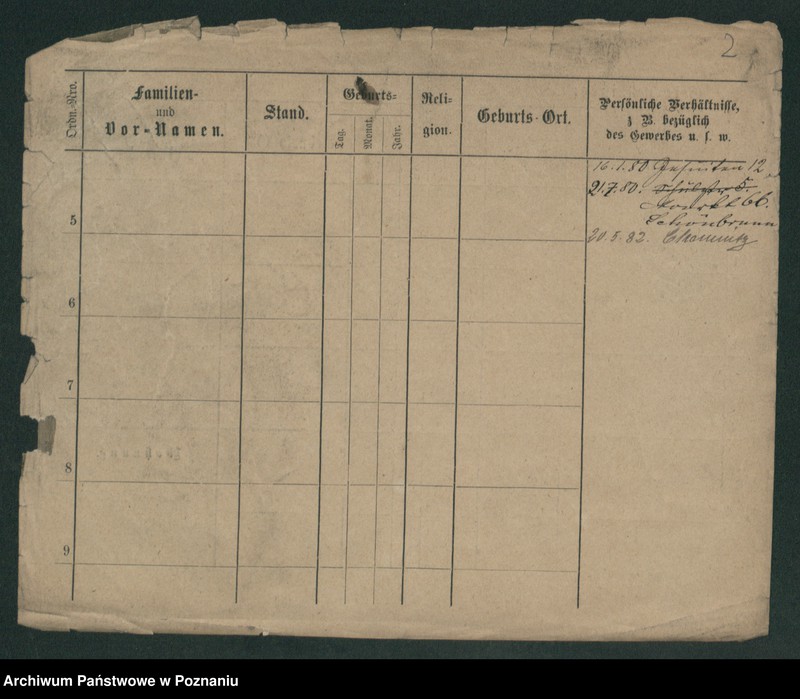 2
Ordn.-Nro.
Familien-
und
Vor-Namen.
Stand.
Geburts-
Tag.
Monat.
Jahr.
Reli-
gion.
Geburts-Ort.
Persönliche Verhältnisse,
z B. bezüglich
des Gewerbes u. s. w.
16.1.80. Jesuiten 12
21.7.80. 5.
Markt 66.
Schönbrunn
20.5.82. Chemnitz
5
6
7
8
9
Archiwum Państwowe w Poznaniu